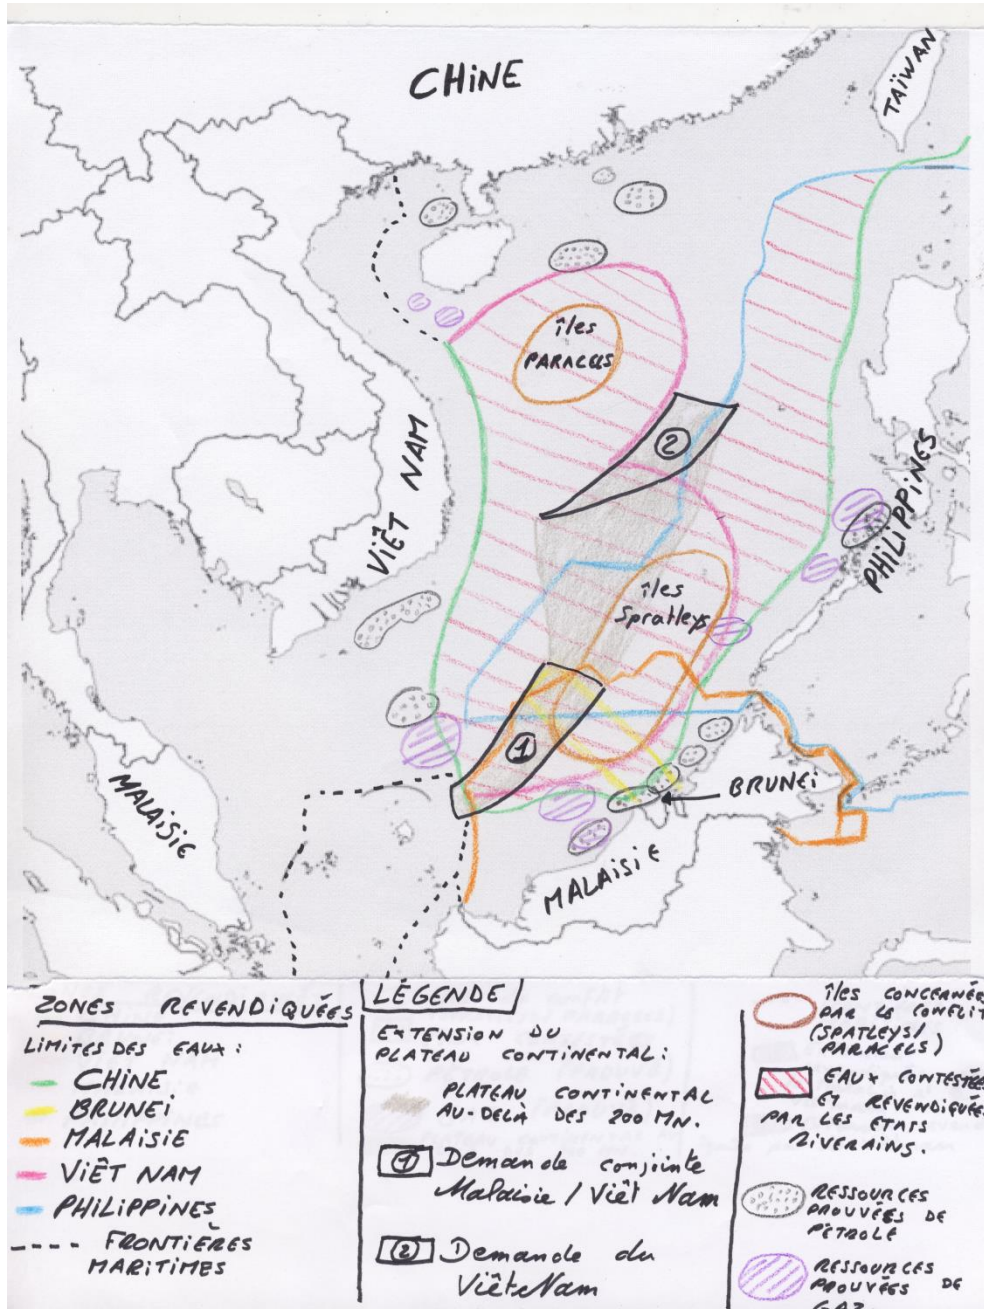 CHINE
TAÏWAN
îles
PARACELS
VIÊT NAM
②
PHILIPPINES
îles
Spratleys
①
BRUNEI
MALAISIE
MALAISIE
ZONES REVENDIQUÉES
LIMITES DES EAUX :
CHINE
BRUNEI
MALAISIE
VIÊT NAM
PHILIPPINES
FRONTIÈRES
MARITIMES
LÉGENDE
EXTENSION DU
PLATEAU CONTINENTAL :
PLATEAU CONTINENTAL
AU-DELÀ DES 200 MN.
① Demande conjointe
Malaisie / Viêt Nam
② Demande du
Viêt Nam
îLES CONCERNÉES
PAR LE CONFLIT
(SPATLEYS/
PARACELS)
EAUX CONTESTÉES
ET REVENDIQUÉES
PAR LES ETATS
RIVERAINS.
RESSOURCES
PROUVÉES DE
PETROLE
RESSOURCES
PROUVÉES DE
GAZ